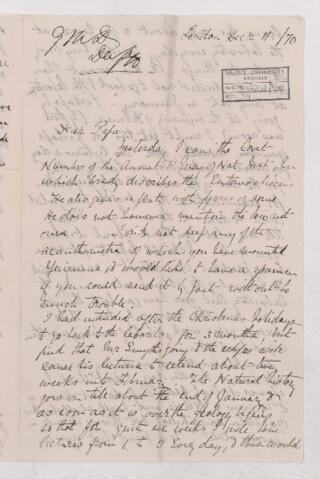 GMD
London Dec 11 /70
McGILL UNIVERSITY
ARCHIVES
ACC. NO.
REF.
Dear Papa,
Yesterday I saw the last
Number of the Annals & Mag of Nat. Hist. in
which Brady describes the Entomostraca
He also gives a plate with figures of some
He does not however mention the
ones I did not keep any of the
of which you have mounted
specimens & would like to have a specimen
if you could send it by post without to
much trouble.
I had intended after the Christmas holidays
to go back to the laboratory for 3 months, but
find that Mr Smyths going to the eclipse will
cause his lectures to extend about two
weeks into February. The Natural history
goes on till about the end of January &
as soon as it is over the geology begins
so that for quite six weeks I will have
lectures from 1 to 3 every day, & this would